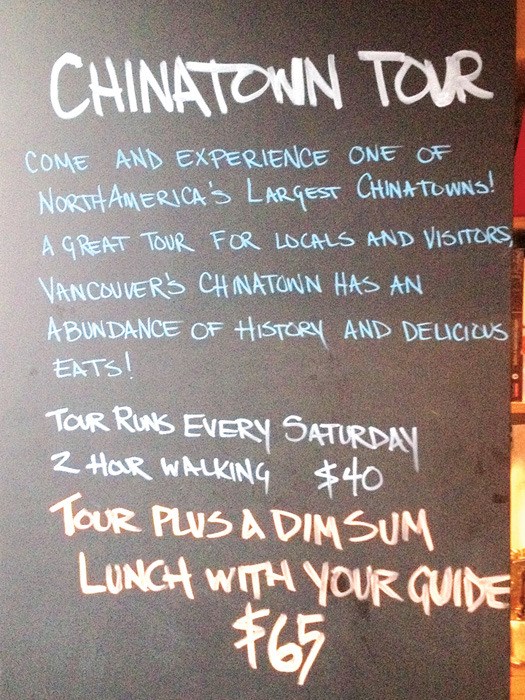 CHINATOWN TOUR
COME AND EXPERIENCE ONE OF
NORTH AMERICA'S LARGEST CHINATOWNS!
A GREAT TOUR FOR LOCALS AND VISITORS
VANCOUVER'S CHINATOWN HAS AN
ABUNDANCE OF HISTORY AND DELICIOUS
EATS!
TOUR RUNS EVERY SATURDAY
2 HOUR WALKING $40
TOUR PLUS A DIM SUM
LUNCH WITH YOUR GUIDE
$65